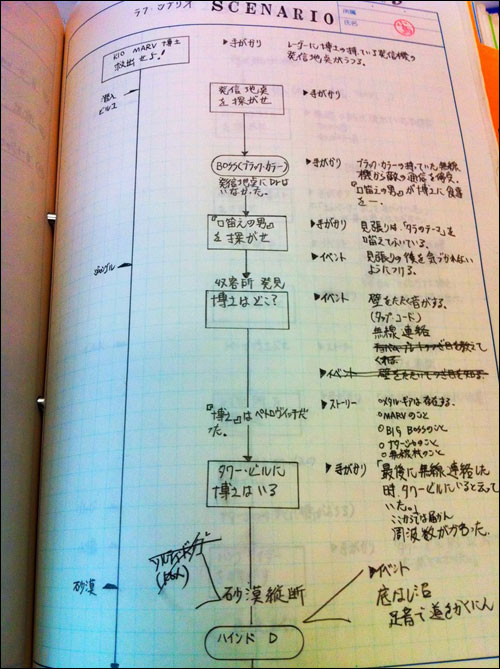 ラフ・シナリオ SCENARIO
所属
氏名
KIO MARV 博士
救出せよ!
▶手がかり レーダーに博士の持っている発信機の
発信地点がうつる。
発信地点
を探がせ
▶手がかり
BOSS(ブラック・カラー)
発信地点にDrは
いなかった。
▶手がかり ブラック・カラーの持っていた無線
機から敵の通信を傍受。
『口笛えの男』が博士に食事
を一。
『口笛えの男』
を探がせ
▶手がかり 見張りは、「テーマ」を
口笛えでふいている。
▶イベント 見張りの後を気づかれない
ようにつける。
ジャングル
収容所 発見
博士はどこ?
▶イベント 壁をたたく音がする。
(タップ・コード)
無線連絡
▶イベント
『博士』はペトロヴィッチだっ
た。
▶ストーリー ○メタル・ギアは存在する。
○MARVのこと
○BIG BOSSのこと
○ナターシャのこと
○無線機のこと
タワー・ビルに
博士はいる
▶手がかり 「最後に無線連絡した
時、タワー・ビルにいると云って
いた。」
ここからでは届かん
周波数がかわった。
砂漠
砂漠縦断
▶イベント
底なし沼
足音で道をかくにん
ハインド D